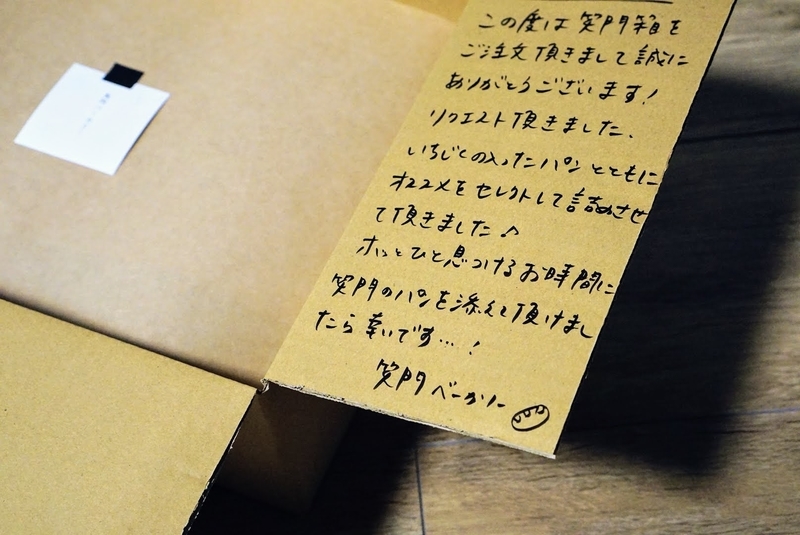 この度は 笑門箱を
ご注文頂きまして 誠に
ありがとうございます!
リクエスト頂きました、
いちじくの入ったパンとともに
オススメをセレクトして詰めさせ
て頂きました♪
ホッとひと息つけるお時間に
笑門のパンを添えて頂けまし
たら幸いです…!
笑門ベーカリー